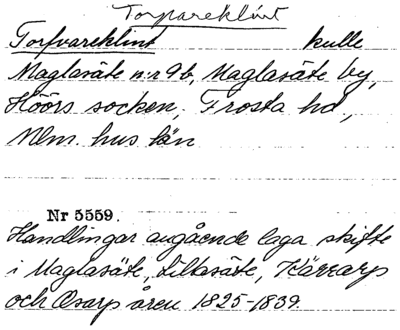 Torpareklint
Torfvareklint kulle
Maglasäte n:r 9b, Maglasäte by,
Höörs socken, Frosta hd,
Mlm. hus län
Nr 5559.
Handlingar angående laga skifte
i Maglasäte, Lillasäte, Kärrarp
och Osarp åren 1825-1839.